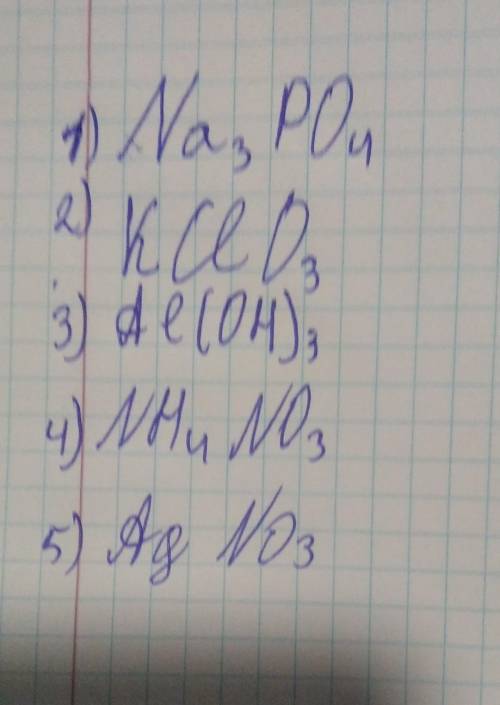 1) Na₃PO₄
2) KClO₃
3) Al(OH)₃
4) NH₄NO₃
5) AgNO₃